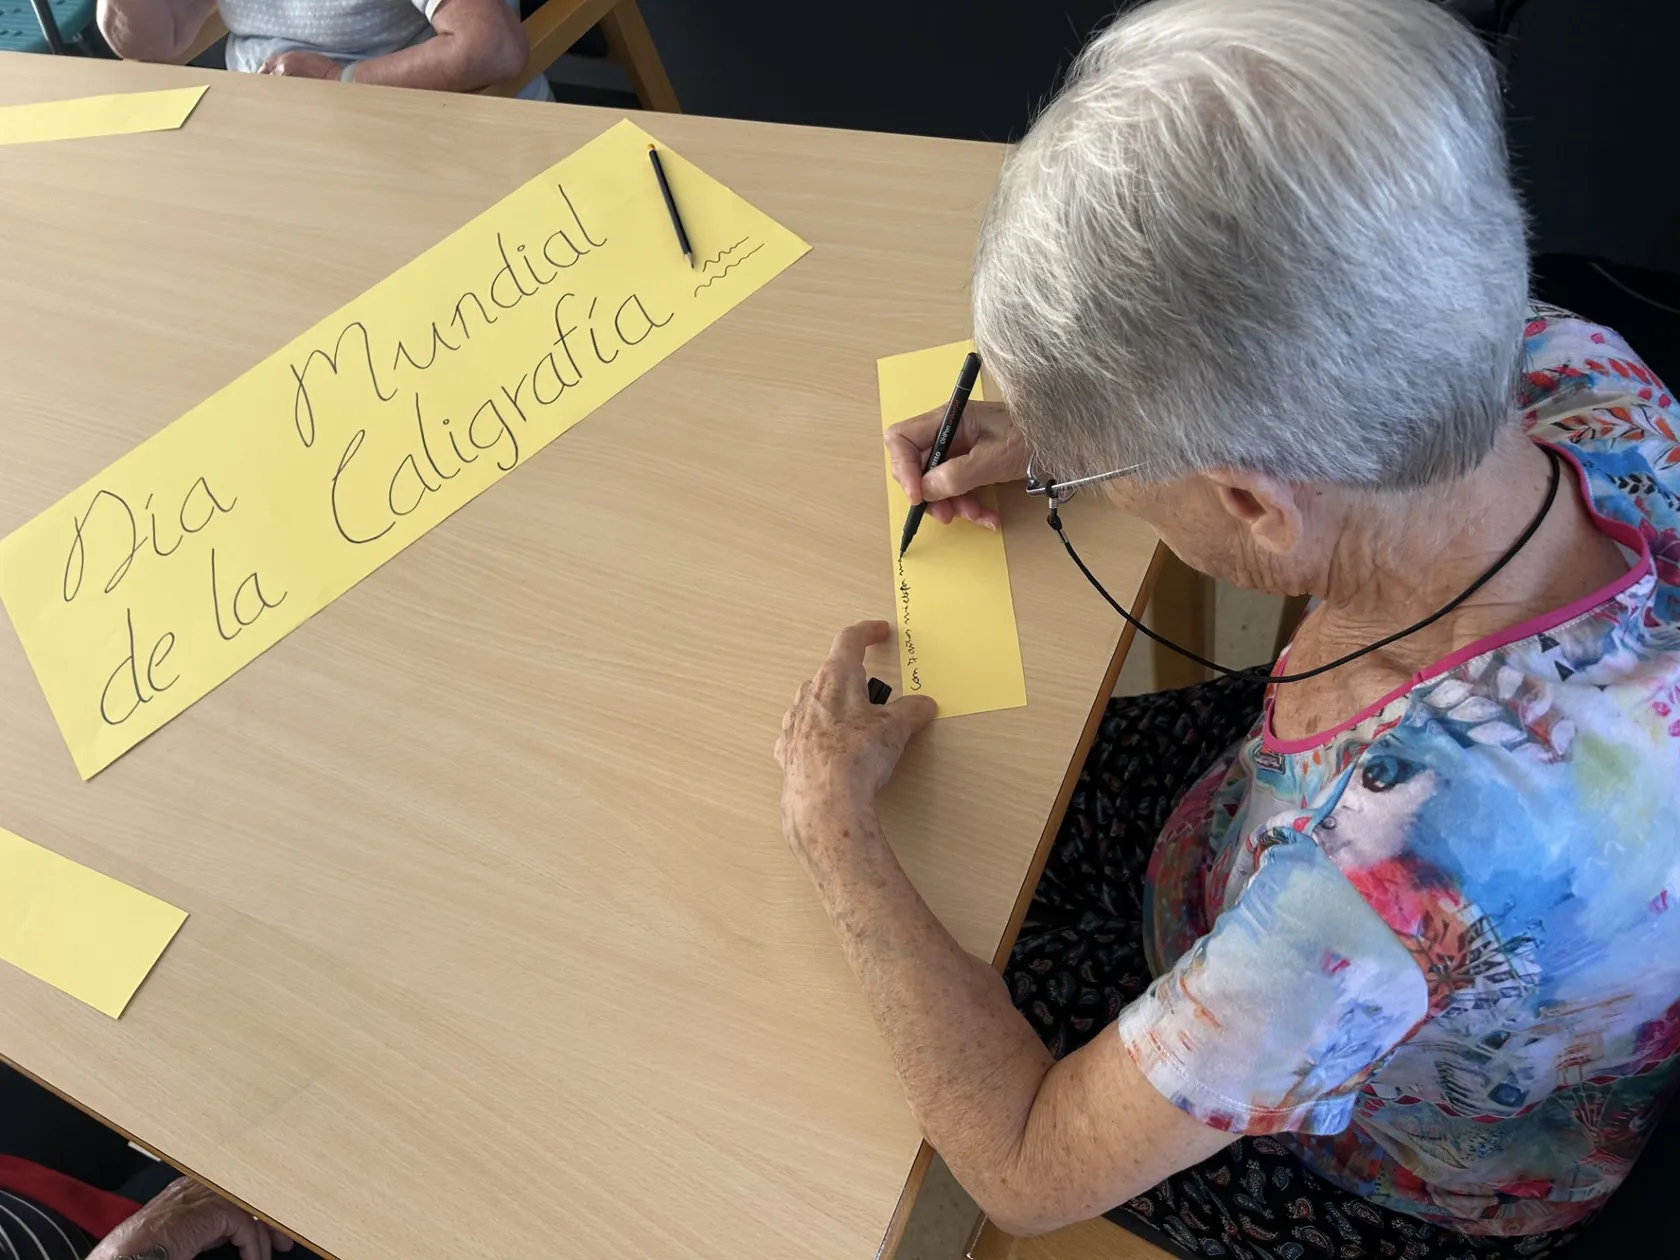 Día Mundial
de la Caligrafía
Con 7 años mi